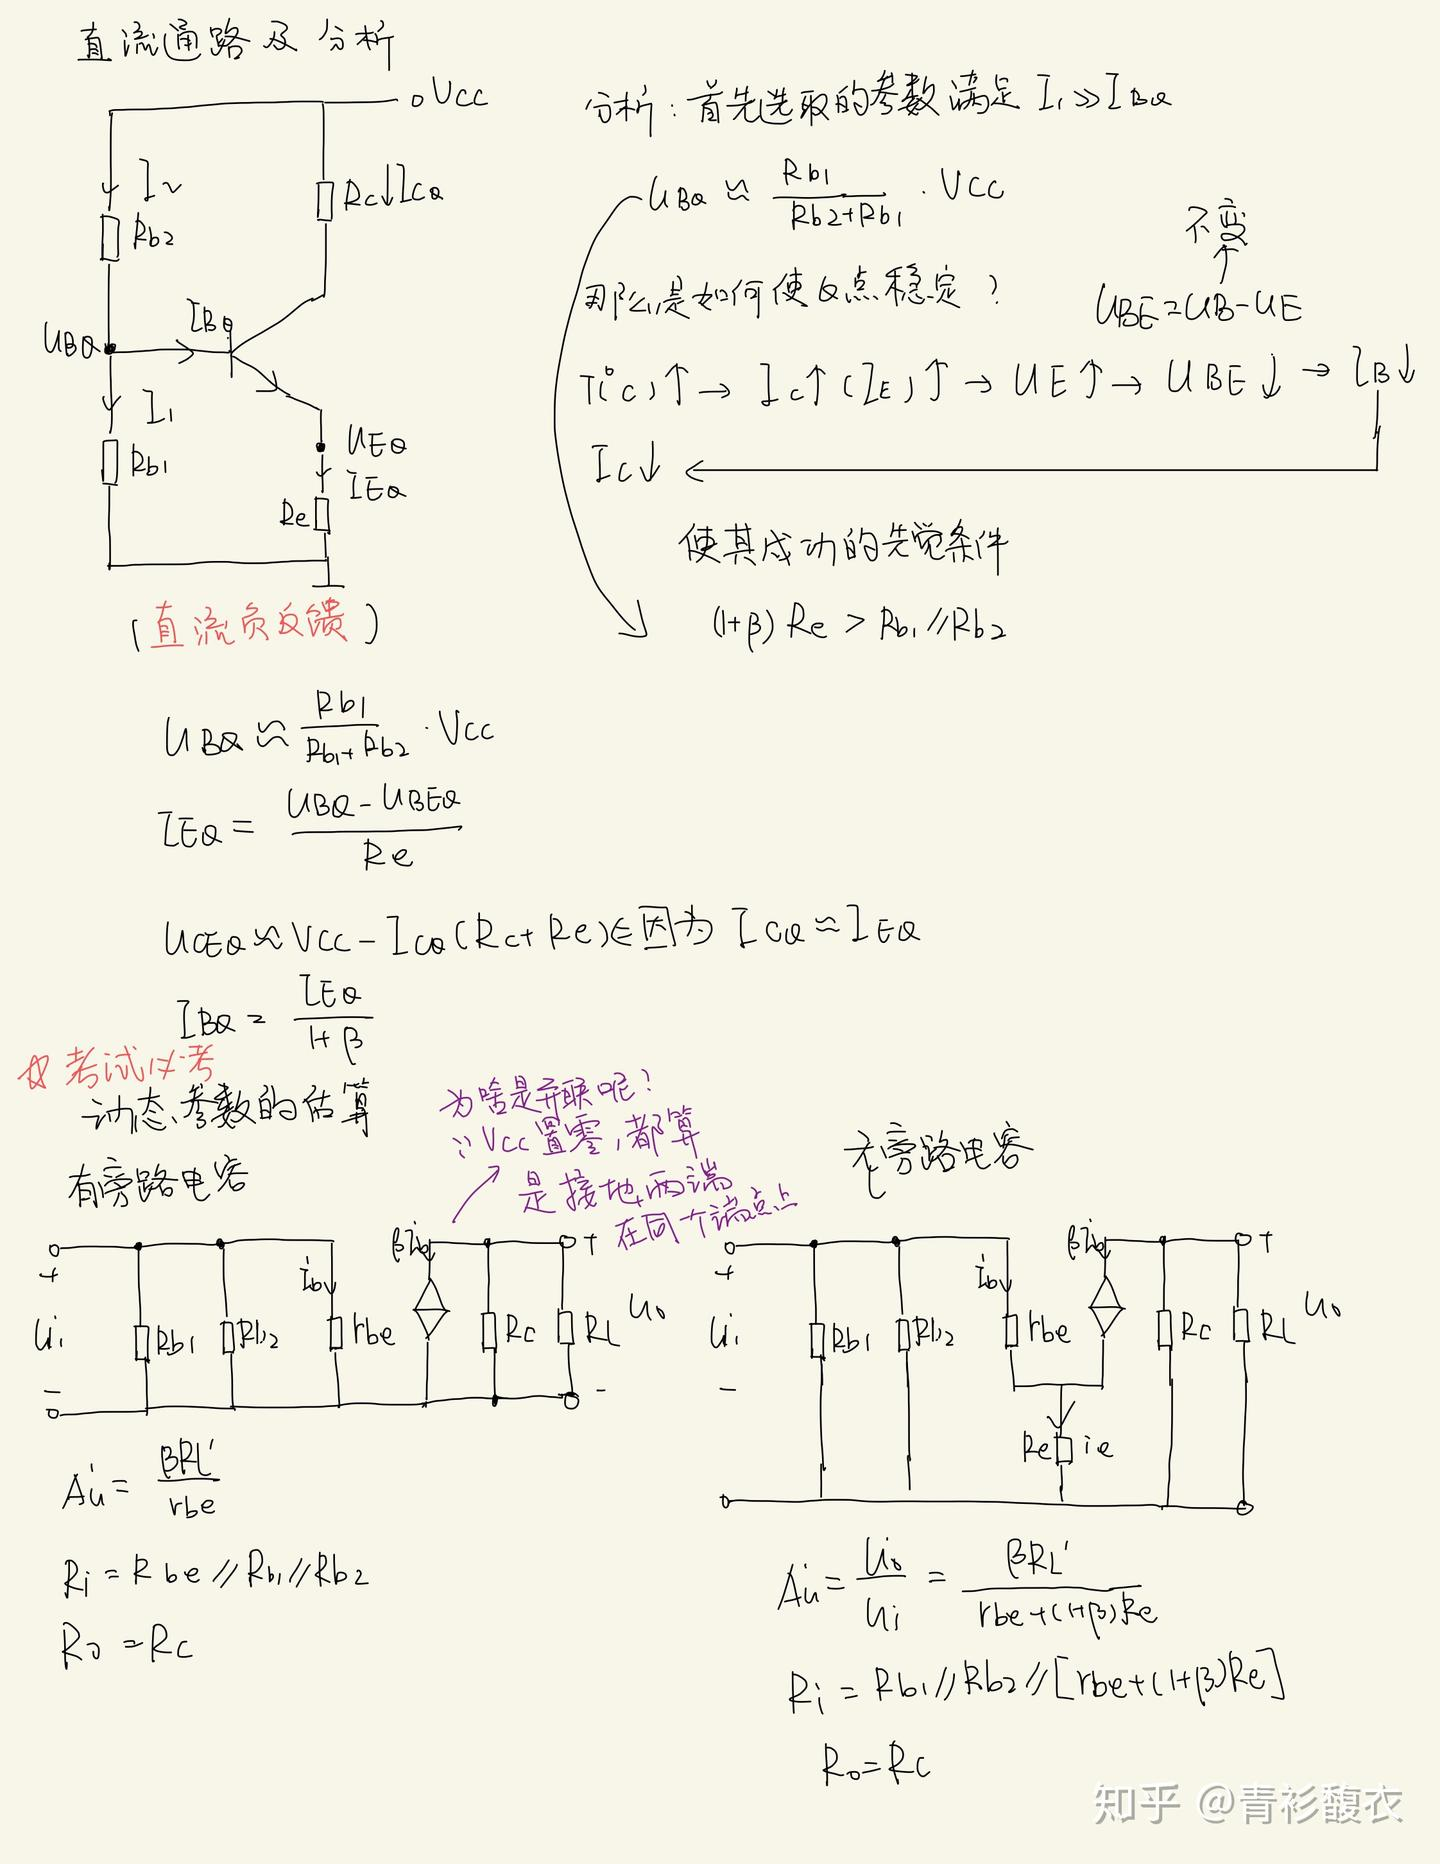 直流通路及分析
VCC
I2
Rc↓ICQ
Rb2
UBQ
IBQ
I1
Rb1
UEQ
IEQ
Re
(直流负反馈)
分析：首先选取的参数满足 I1≫IBQ
UBQ ≈ Rb1/(Rb2+Rb1) · VCC
不变
↑
那么是如何使Q点稳定？
UBE=UB-UE
T(°C)↑→ IC↑(IE)↑→ UE↑→ UBE↓→ IB↓
IC↓ ←
使其成功的先觉条件
(1+β)Re > Rb1//Rb2
UBQ ≈ Rb1/(Rb1+Rb2) · VCC
IEQ = (UBQ-UBEQ)/Re
UCEQ≈VCC-ICQ(Rc+Re)∈因为 ICQ≈IEQ
IBQ = IEQ/(1+β)
☆考试必考
动态参数的估算
为啥是并联呢？
∵VCC置零，都算
是接地，两端
在同个端点上
有旁路电容
+
Ui
-
Rb1
Rb2
ib
rbe
βib
Rc
RL
+
Uo
-
Au = βRL'/rbe
Ri = Rbe//Rb1//Rb2
Ro = Rc
无旁路电容
+
Ui
-
Rb1
Rb2
ib
rbe
βib
Rc
RL
+
Uo
Re
ie
Au = Uo/Ui = βRL'/(rbe+(1+β)Re)
Ri = Rb1//Rb2//[rbe+(1+β)Re]
Ro=Rc
知乎 @青衫馥衣